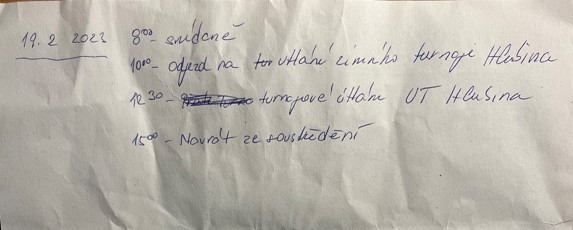 19. 2 2023 8⁰⁰ - snídaně
10⁰⁰ - odjezd na utkání zimního turnaje Hlušina
12 30 - turnajové utkání UT Hlušina
15⁰⁰ - Navrát ze soustředění